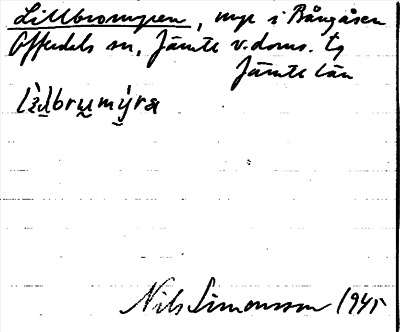 Lillbromyren, myr i Rångåsen
Offerdals sn, Jämtl v. doms. tg
Jämtl län
lìllbrumýra
Nils Simonsson 1945